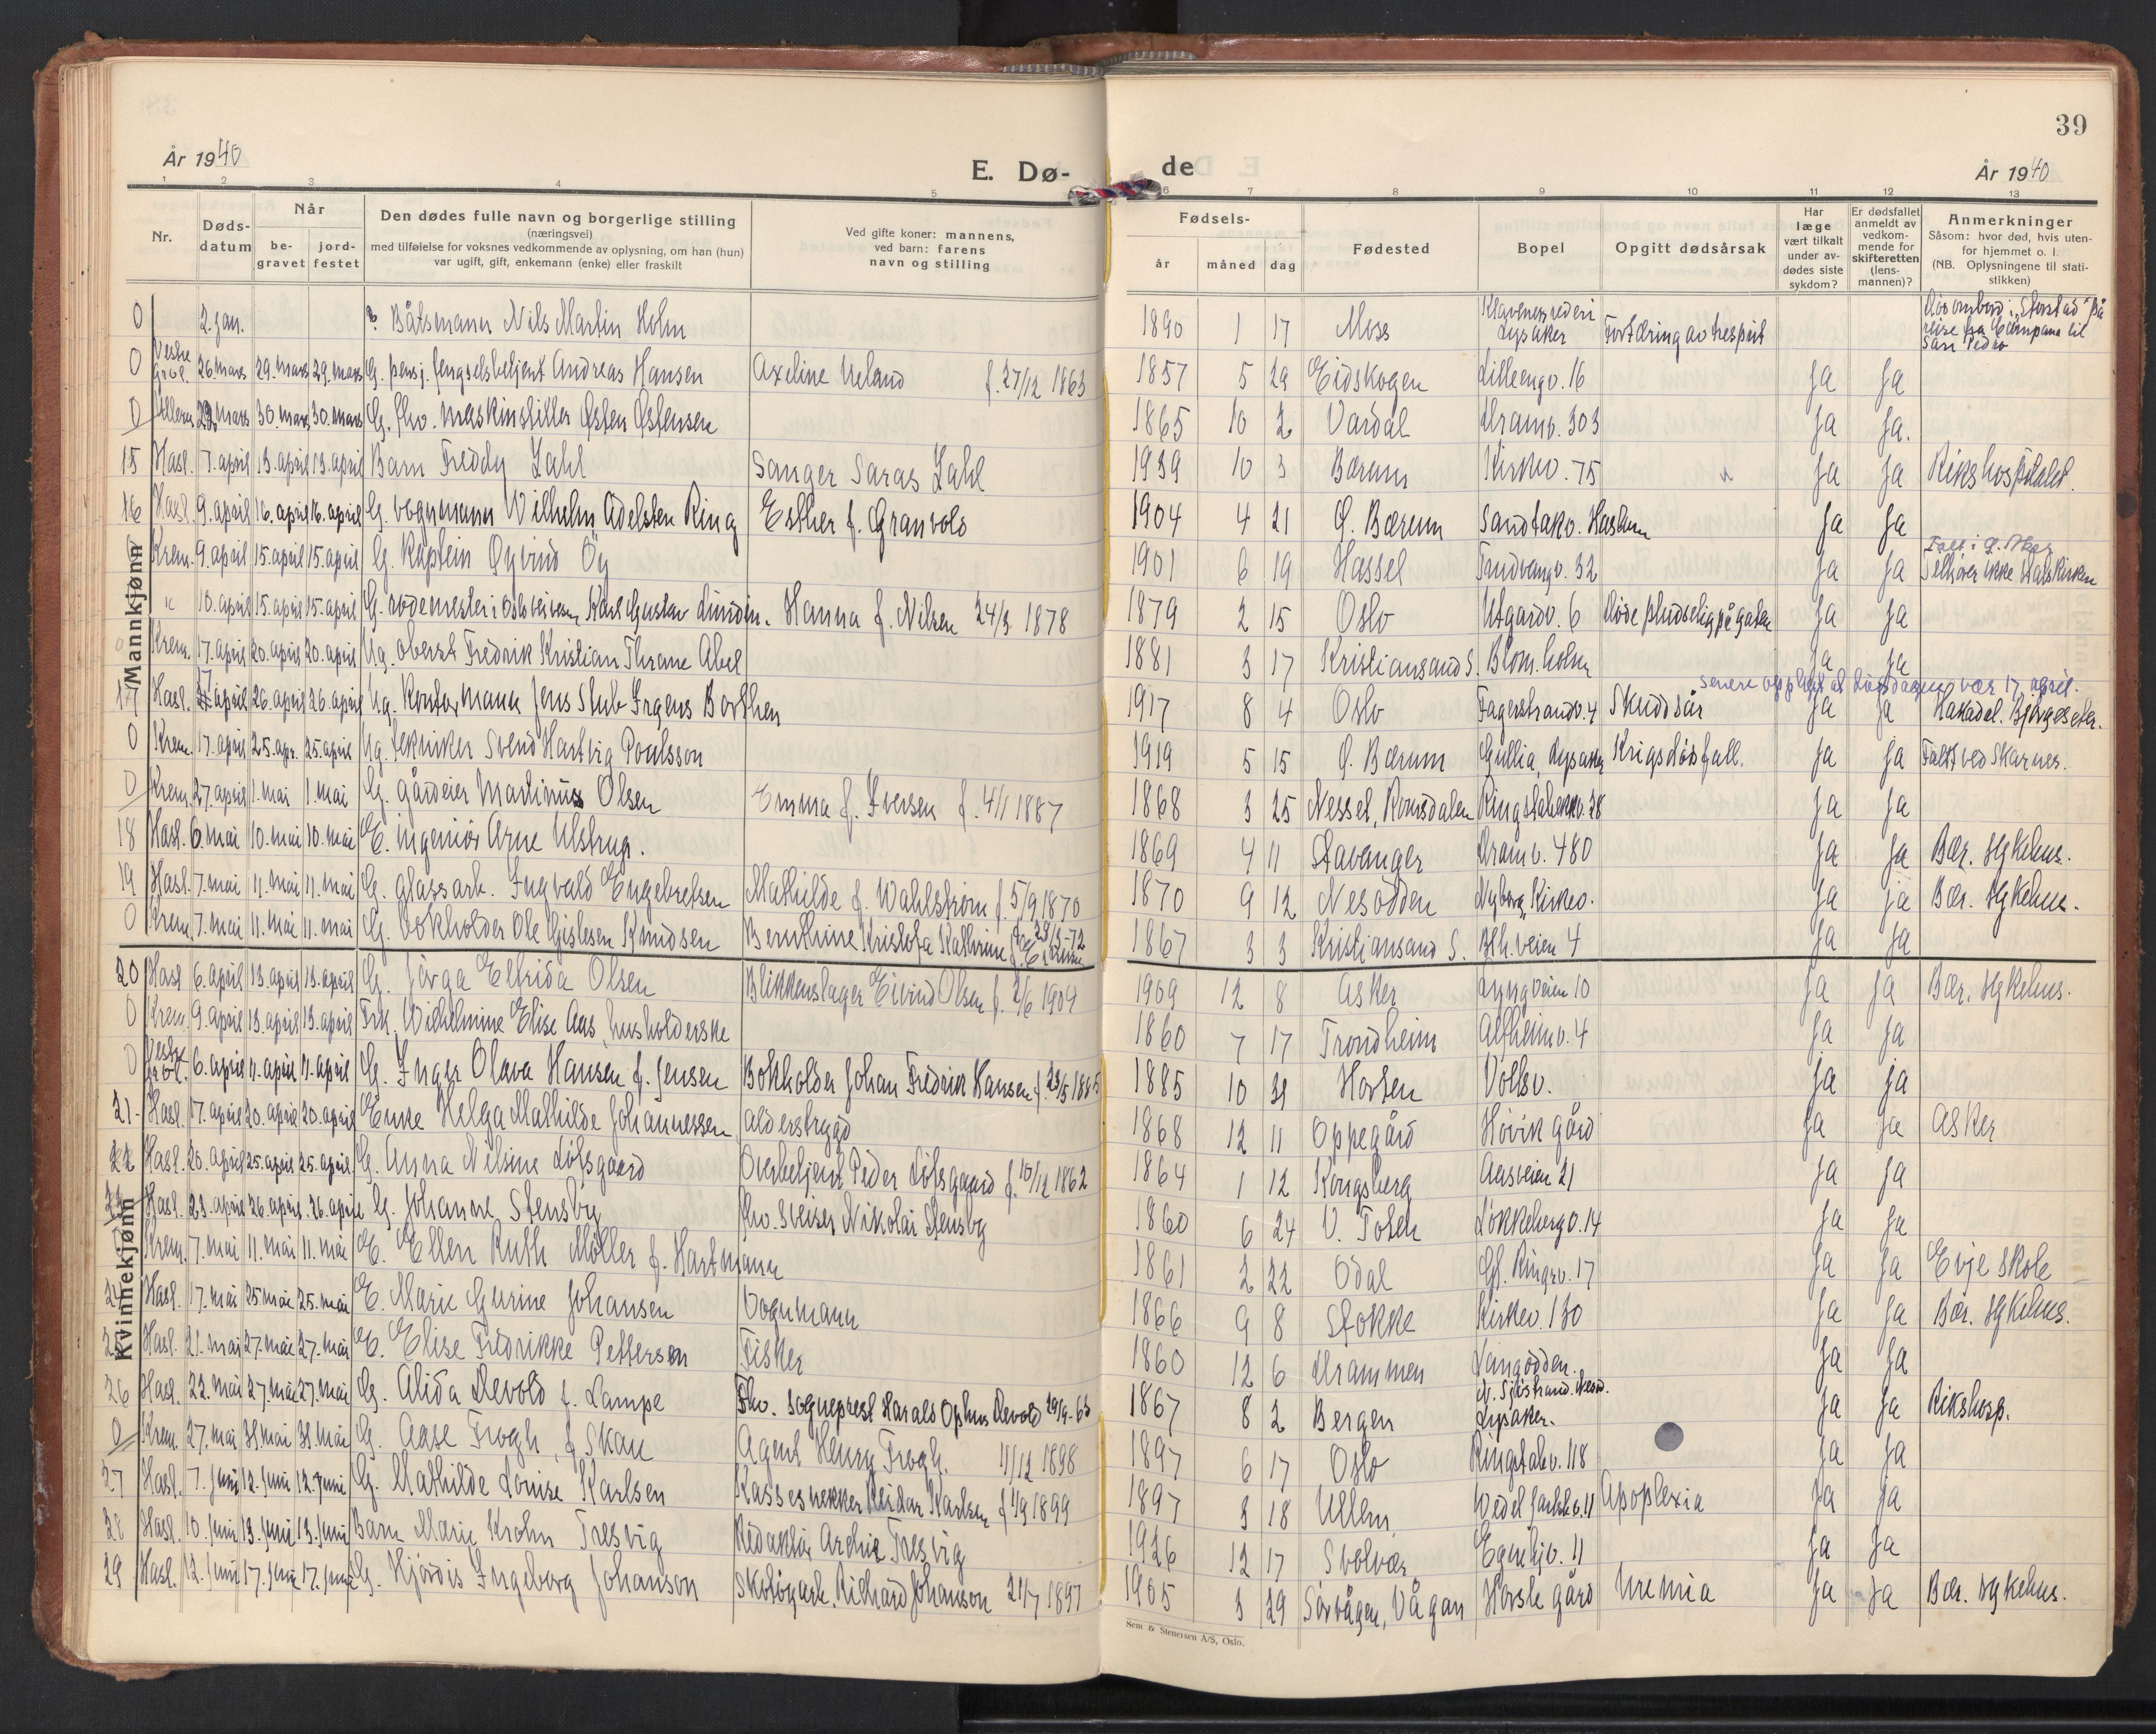 39
År 1940
E. Dø-
de
År 1940
1 2 3 4 5 6 7 8 9 10 11 12 13
Nr.
Døds-
datum
Når
be-
gravet
jord-
festet
Den dødes fulle navn og borgerlige stilling
(næringsvei)
med tilføielse for voksnes vedkommende av oplysning, om han (hun)
var ugift, gift, enkemann (enke) eller fraskilt
Ved gifte koner: mannens,
ved barn: farens
navn og stilling
Fødsels-
år måned dag
Fødested
Bopel
Opgitt dødsårsak
Har
læge
vært tilkalt
under av-
dødes siste
sykdom?
Er dødsfallet
anmeldt av
vedkom-
mende for
skifteretten
(lens-
mannen)?
Anmerkninger
Såsom: hvor død, hvis uten-
for hjemmet o. l.
(NB. Oplysningene til stati-
stikken)
Mannkjønn
0 2. jan. Båtsmann Nils Martin Holm 1890 1 17 Moss Klavenes rederi Lysaker Fortæring av tresprit Døde ombord i "Storstad" på reise fra til San Pedro
0 Vestre Grav. 26. mars 29. mars 29. mars G. pensj. fengselsbetjent Andreas Hansen Axeline Ueland f. 27/12 1863 1857 5 29 Eidskogen Lilleengv. 16 Ja Ja
0 Ullern 23. mars 30. mars 30. mars G. fhv. maskinstiller Østen Østensen 1865 10 2 Vardal Dramv. 303 Ja Ja.
15 Hasl. 7. april 13. april 13. april Barn Freddy Zahl Sanger Saras Zahl 1939 10 3 Bærum Kirkev. 75 Ja Ja Rikshospitalet.
16 Hasl. 9. april 16. april 16. april G. vognmann Wilhelm Adelsten Ring Esther f. Granvold 1904 4 21 Ø. Bærum Sandtakv. Haslum Ja Ja
Krem. 9. april 15. april 15. april G. Kaptein Øyvind Öy 1901 6 19 Hassel Trudvangv. 32 Ja Ja Tilhører ikke statskirken
" 10. april 15. april 15. april G. rodemester i Oslo veivesen Karl Gustav Lundin. Hanna f. Nilsen 24/3 1878 1879 2 15 Oslo Utgardv. 6 Døde pludselig på gaten Ja Ja
0 Krem. 17. april 20. april 20. april Ug. oberst Fredrik Kristian Thrane Abel 1881 3 17 Kristiansand S. Blom.holm Ja Ja
senere opplyst at dødsdagen var 17. april.
17 Hasl. 17 april 26. april 26. april Ug. Kontormann Jens Stub Irgens Borthen 1917 8 4 Oslo Fagerstrandv. 4 Skuddsår Ja Ja Hakadal. Bjørgeseter.
0 Krem. 17. april 25. apr. 25. april Ug. tekniker Svend Hartvig Poulsson 1919 5 15 Ø. Bærum Gullia, Lysaker Krigsdødsfall. Ja Ja Falt ved Skarnes.
0 Krem. 27. april 1. mai 1. mai G. gårdeier Martinus Olsen Emma f. Iversen f. 4/1 1887 1868 3 25 Nesset, Romsdalen Ringstabekkv. 28 Ja Ja
18 Hasl. 6. mai 10. mai 10. mai E. ingeniør Arne Ulstrup. 1869 4 11 Stavanger Dramv. 480 Ja Ja Bær. sykehus.
19 Hasl. 7. mai 11. mai 11. mai G. glassarb. Ingvald Engebretsen Mathilde f. Wahlstrøm f. 5/9 1870 1870 9 12 Nesodden Nyborg, Kirkev. Ja ja Bær. sykehus.
0 Krem. 7. mai 11. mai 11. mai G. bokholder Ole Gislesen Knudsen Bernthine Kristofa Kathrine 1867 3 3 Kristiansand S. Blh.veien 4 Ja Ja
Kvinnekjønn
20 Hasl 6. april 13. april 13. april G. Jørga Elfrida Olsen Blikkenslager Eivind Olsen f. 2/6 1909 1909 12 8 Asker Lyngveien 10 Ja Ja Bær. sykehus.
0 Krem. 9. april 13. april 13. april Frk. Wilhelmine Elise Aas, husholderske 1860 7 17 Trondheim Alfheimv. 4 Ja Ja
0 Vestre Grav. 6. april 11. april 11. april G. Inger Olava Hansen f. Jensen Bokholder Johan Fredrik Hansen f. 23/5 1885 1885 10 31 Horten Vollsv. ja ja
21 Hasl. 17. april 20. april 20. april Enke Helga Mathilde Johannessen alderstrygd 1868 12 11 Oppegård Høvik gård Ja Ja Asker
22 Hasl. 20. april 25. april 25. april G. Anna Nilsine Løfsgaard Overbetjent Peder Løfsgaard f. 10/12 1862 1864 1 12 Kongsberg Aasveien 21 Ja Ja
23 Hasl. 23. april 26. april 26. april G. Johanne Stensby fhv. sveiser Nikolai Stensby 1860 6 24 V. Toten Løkkebergv. 14 Ja Ja
Krem. 7. mai 11. mai 11. mai E. Ellen Ruth Møller f. Hartmann 1861 2 22 Odal Gl. Ringv. 17 Ja Ja Evje skole
24 Hasl. 17. mai 25. mai 25. mai E. Marie Gurine Johansen Vognmann 1866 9 8 Stokke Kirkev. 130 Ja Ja Bær. sykehus.
Hasl. 21. mai 27. mai 27. mai E. Elise Fredrikke Pettersen Fisker 1860 12 6 Drammen Langodden. Ja Ja
26 Hasl. 22. mai 27. mai 27. mai G. Alida Devold f. Lampe Fhv. sogneprest Harald Ophus Devold 29/9-63 1867 8 2 Bergen Lysaker. Ja Ja Rikshosp.
0 Krem. 27. mai 31. mai 31. mai G. Aase Frogh, f. Skau Agent Henry Frogh. 11/12 1898 1897 6 17 Oslo Ringstabv. 118 Ja Ja
27 Hasl. 7. juni 12. juni 12. juni G. Mathilde Louise Karlsen Kassesnekker Reidar Karlsen f. 1/9 1899 1897 3 18 Ullern Wedel Jarlsbv. 11 Apoplexia Ja Ja
28 Hasl. 10. juni 13. juni 13. juni Barn Marie Krohn Tresvig Redaktør Archie Tresvig 1926 12 17 Svolvær Egnehjv. 11 Ja Ja
29 Hasl. 12. juni 17. juni 17. juni G. Hjørdis Ingeborg Johanson Skotøyarb. Richard Johanson 21/7 1897 1905 3 29 Sørvågen, Vågan Horsle gård Uremia Ja Ja Bær. sykehus.
Sem & Stenersen A/S, Oslo.